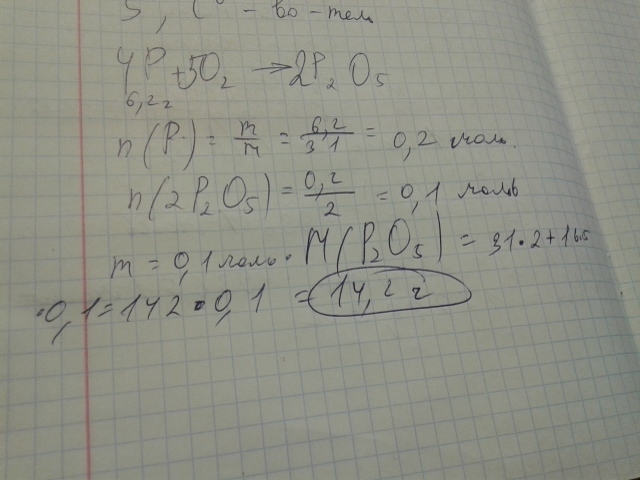 S, C - во-тел
4P + 5O₂ → 2P₂O₅
6,2 г
n(P) = m/M = 6,2/31 = 0,2 моль.
n(2P₂O₅) = 0,2/2 = 0,1 моль
m = 0,1 моль · M(P₂O₅) = 31·2+16·5
·0,1 = 142 · 0,1 = 14,2 г